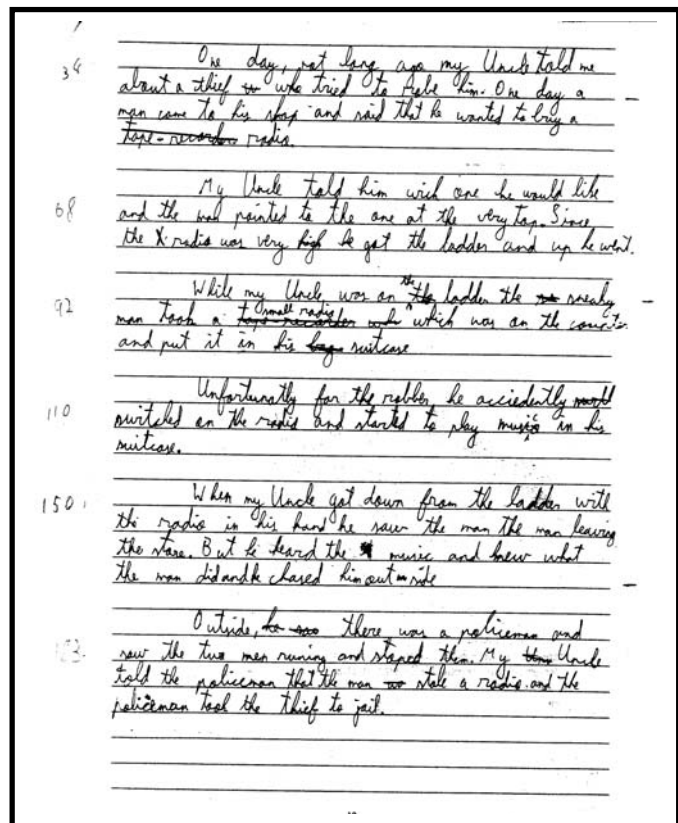 One day, not long ago my Uncle told me
34
about a thief who tried to robe him. One day a
man came to his shop and said that he wanted to buy a
tape-recorder radio.
My Uncle told him wich one he would like
68
and the man pointed to the one at the very top. Since
the radio was very high he got the ladder and up he went.
While my Uncle was on the ladder the sneaky
92
man took a tape-recorder small radio which was on the counter
and put it in his bag suitcase
Unfortunatly for the robber he accidently
110
switched on the radio and started to play music in his
suitcase.
When my Uncle got down from the ladder with
150
the radio in his hand he saw the man the man leaving
the store. But he heard the music and knew what
the man did and he chased him out side
Outside, he saw there was a policeman and
saw the two men runing and stoped them. My Uncle
told the policeman that the man stole a radio and the
policeman took the thief to jail.